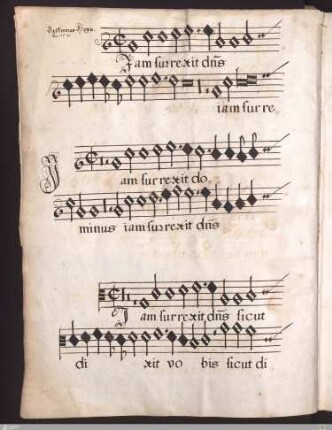 Jam surrexit dñs
iam sur re,
Jam sur rexit do,
minus iam surrexit dñs
Jam surrexit dñs sicut
di xit vo bis sicut di